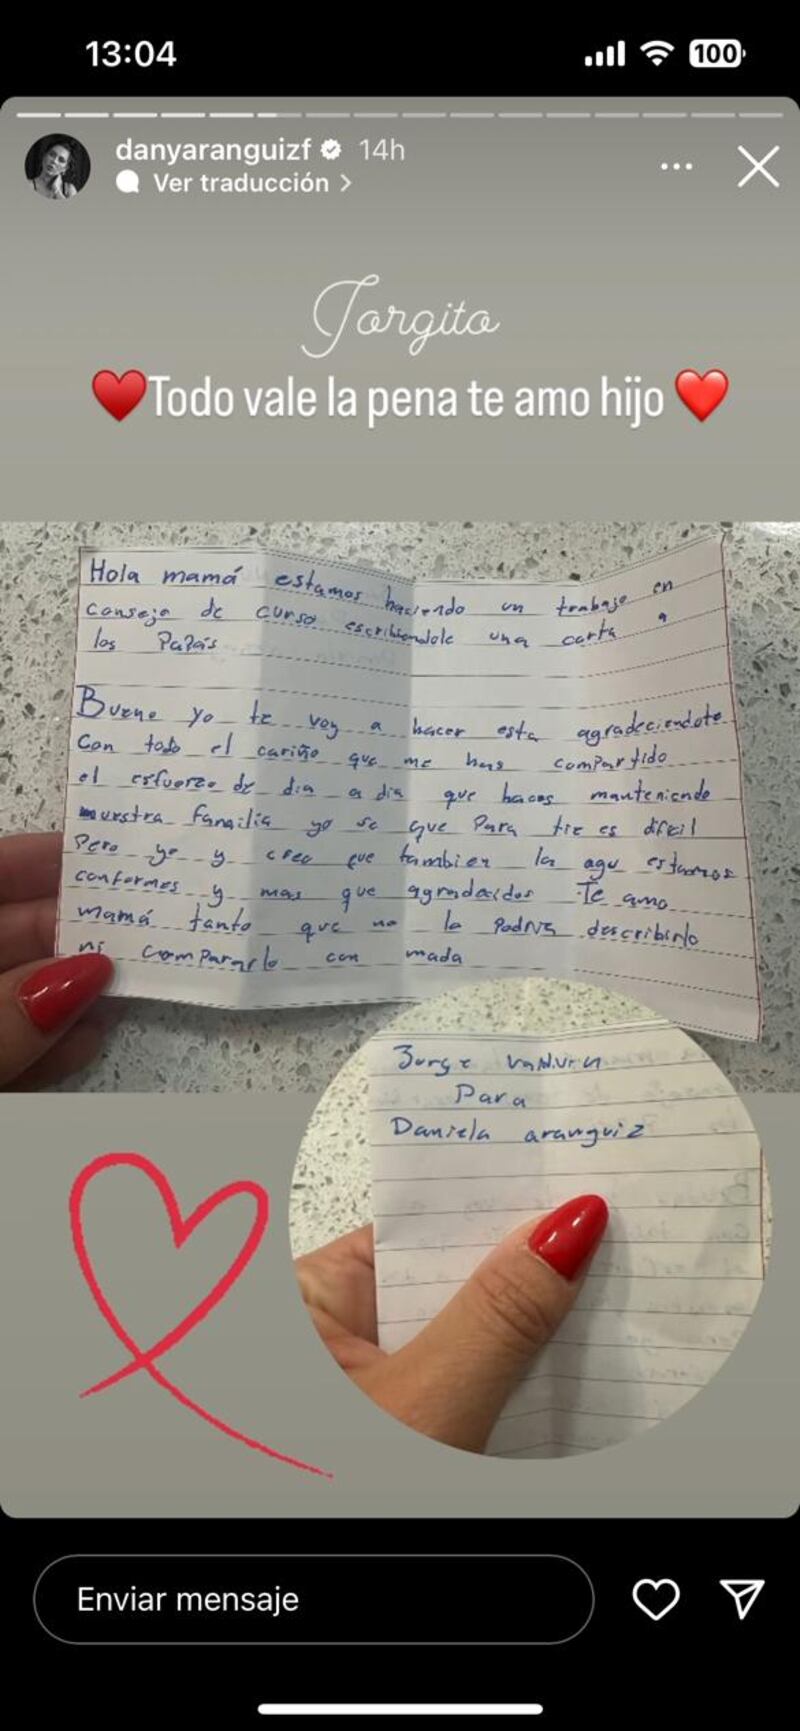 13:04
100
danyaranguizf 14h
Ver traducción >
Jorgito
❤️Todo vale la pena te amo hijo❤️
Hola mamá estamos haciendo un trabajo en
consejo de curso escribiendole una carta a
los Papás
Bueno yo te voy a hacer esta agradeciendote
con todo el cariño que me has compartido
el esfuerzo de dia a dia que haces manteniendo
nuestra familia yo se que para tie es dificil
Pero yo y creo que tambien la agu estamos
conformes y mas que agradecidos Te amo
mamá tanto que no lo podria describirlo
ni compararlo con nada
Jorge
Para
Daniela aranguiz
Enviar mensaje